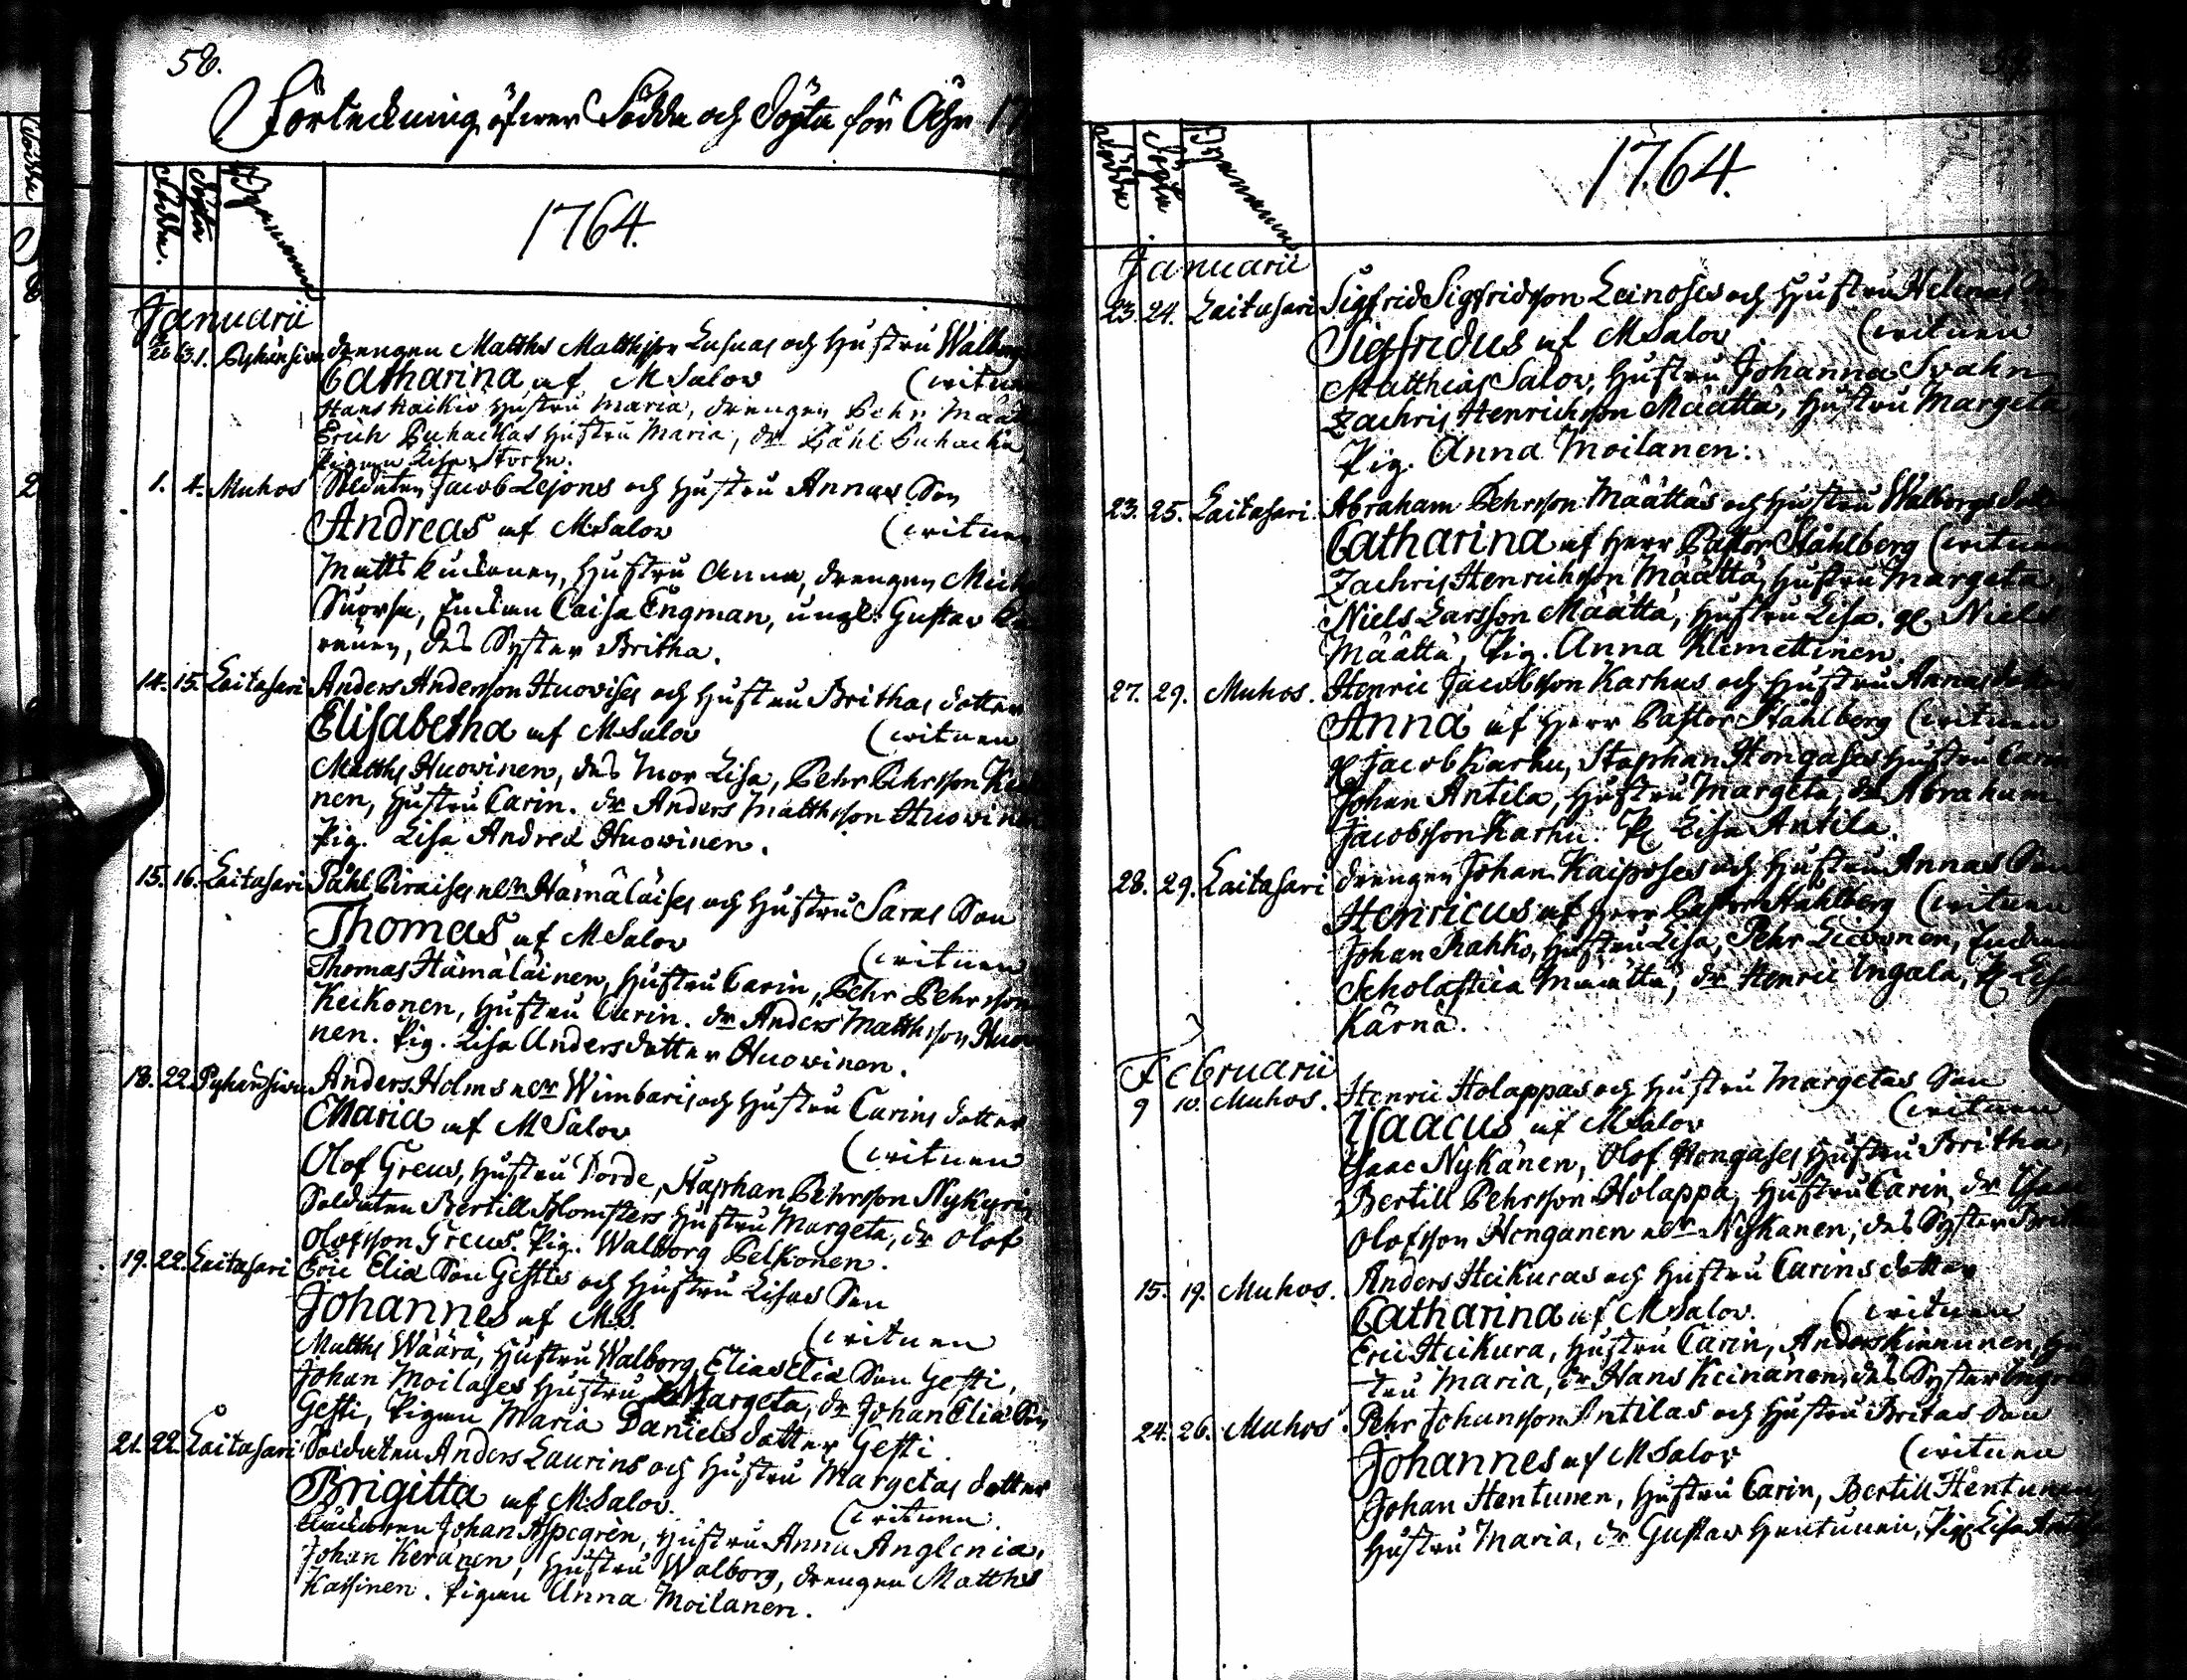 58.
Förteckning öfwer Födde och Döpte för Åhr 17
Födde. Döpte Byarnamn
1764.
Januarii
1. Pyhänsivu drengen Matths Matthsson Lusuas och Hustru Walborgs
Catharina af M Salov (witnen
Hans Kaikio Hustru Maria, drengen Pehr Määt
Erich Puhackas Hustru Maria, dr Påhl Puhacka
Pigan Lisa
1. 4. Muhos Soldaten Jacob Lejons och Hustru Annas Son
Andreas af M Salov (witnen
Matts Kuckonen, Hustru Anna, drengen Mich
Suorsa, Enckan Caisa Engman, ungk: Gustav
nen, des Syster Britha.
14. 15. Laitasari Anders Andersson Huovises och Hustru Brithas dotter
Elisabetha af M Salov (witnen
Matths Huovinen, des Mor Lisa, Pehr Pehrsson Kei
nen, Hustru Carin. dr Anders Matthsson Huovinen
Pig. Lisa Andred Huovinen.
15. 16. Laitasari Påhl Piraises elr Hämäläises och Hustru Saras Son
Thomas af M Salov (witnen
Thomas Hämäläinen, Hustru Carin, Pehr Pehrsson
Keikonen, Hustru Carin. dr Anders Matthsson Huovi
nen. Pig. Lisa Andersdotter Huovinen.
18. 22. Pyhänsivu Anders Holms elr Wimbaris och Hustru Carins dotter
Maria af M Salov (witnen
Olof Greus, Hustru Porde, Staphan Pehrsson Nykyri
Soldaten Bertill Blomsters Hustru Margeta, dr Olof
Olofsson Greus. Pig. Walborg Pelkonen.
19. 22. Laitasari Eric Elia Son Gestis och Hustru Lisas Son
Johannes af M.S. (witnen
Matths Wäärä, Hustru Walborg, Elias Elia Son Gesti,
Johan Moilases Hustru Margeta, dr Johan Elia Son
Gesti, Pigan Maria Danielsdotter Gesti
21. 22. Laitasari Soldaten Anders Laurins och Hustru Margetas dotter
Brigitta af M Salov. (witnen.
Johan Aspegrèn, Hustru Anna Anglenia,
Johan Keränen, Hustru Walborg, drengen Matths
Kassinen. Pigan Anna Moilanen.
Födde Döpte Byanamn
1764.
Januarii
23. 24. Laitasari Sigfrid Sigfridsson Leinoses och Hustru Helenas
Sigfridus af M Salov (witnen
Matthias Salov, Hustru Johanna Svahn
Zachris Henrichsson Määttä, Hustru Margeta
Pig. Anna Moilanen:
23. 25. Laitasari. Abraham Pehrsson Määttäs och Hustru Walborgs dotter
Catharina af Herr Pastor Ståhlberg (witnen
Zachris Henrichsson Määttä, Hustru Margeta,
Niels Larsson Määttä, Hustru Lisa. gl Niels
Määttä, Pig. Anna Klemettinen.
27. 29. Muhos. Henric Jacobsson Karhus och Hustru Annas dotter
Anna af Herr Pastor Ståhlberg (witnen
gl Jacob Karhu, Staphan Hongases Hustru Carin
Johan Antila, Hustru Margeta, dr Abraham
Jacobsson Karhu. Pl Lisa Antila.
28. 29. Laitasari drengen Johan Kaiposes och Hustru Annas Son
Henricus af Herr Pastor Ståhlberg (witnen
Johan Rahko, Hustru Lisa, Pehr Licvonen, Enckan
Scholastica Määttä, dr Henric Ingala, Pl Lisa
Kärnä.
Februarii
9 10. Muhos. Henric Holappas och Hustru Margetas Son
Isaacus af M Salov (witnen
Isaac Nykänen, Olof Hongases Hustru Britha,
Bertill Pehrsson Holappa, Hustru Carin, dr Isaac
Olofsson Honganen elr Nykanen, des Syster Britha
15. 19. Muhos. Anders Heikuras och Hustru Carins dotter
Catharina af M Salov. (witnen
Eric Heikura, Hustru Carin, Anders Kinnunen, Hu
stru Maria, dr Hans Keinänen, des Syster Ingrid
24. 26. Muhos. Pehr Johansson Antilas och Hustru Britas Son
Johannes af M Salov (witnen
Johan Hentunen, Hustru Carin, Bertill Hentunen
Hustru Maria, dr Gustav Hentunen, Pig Lisa Antila